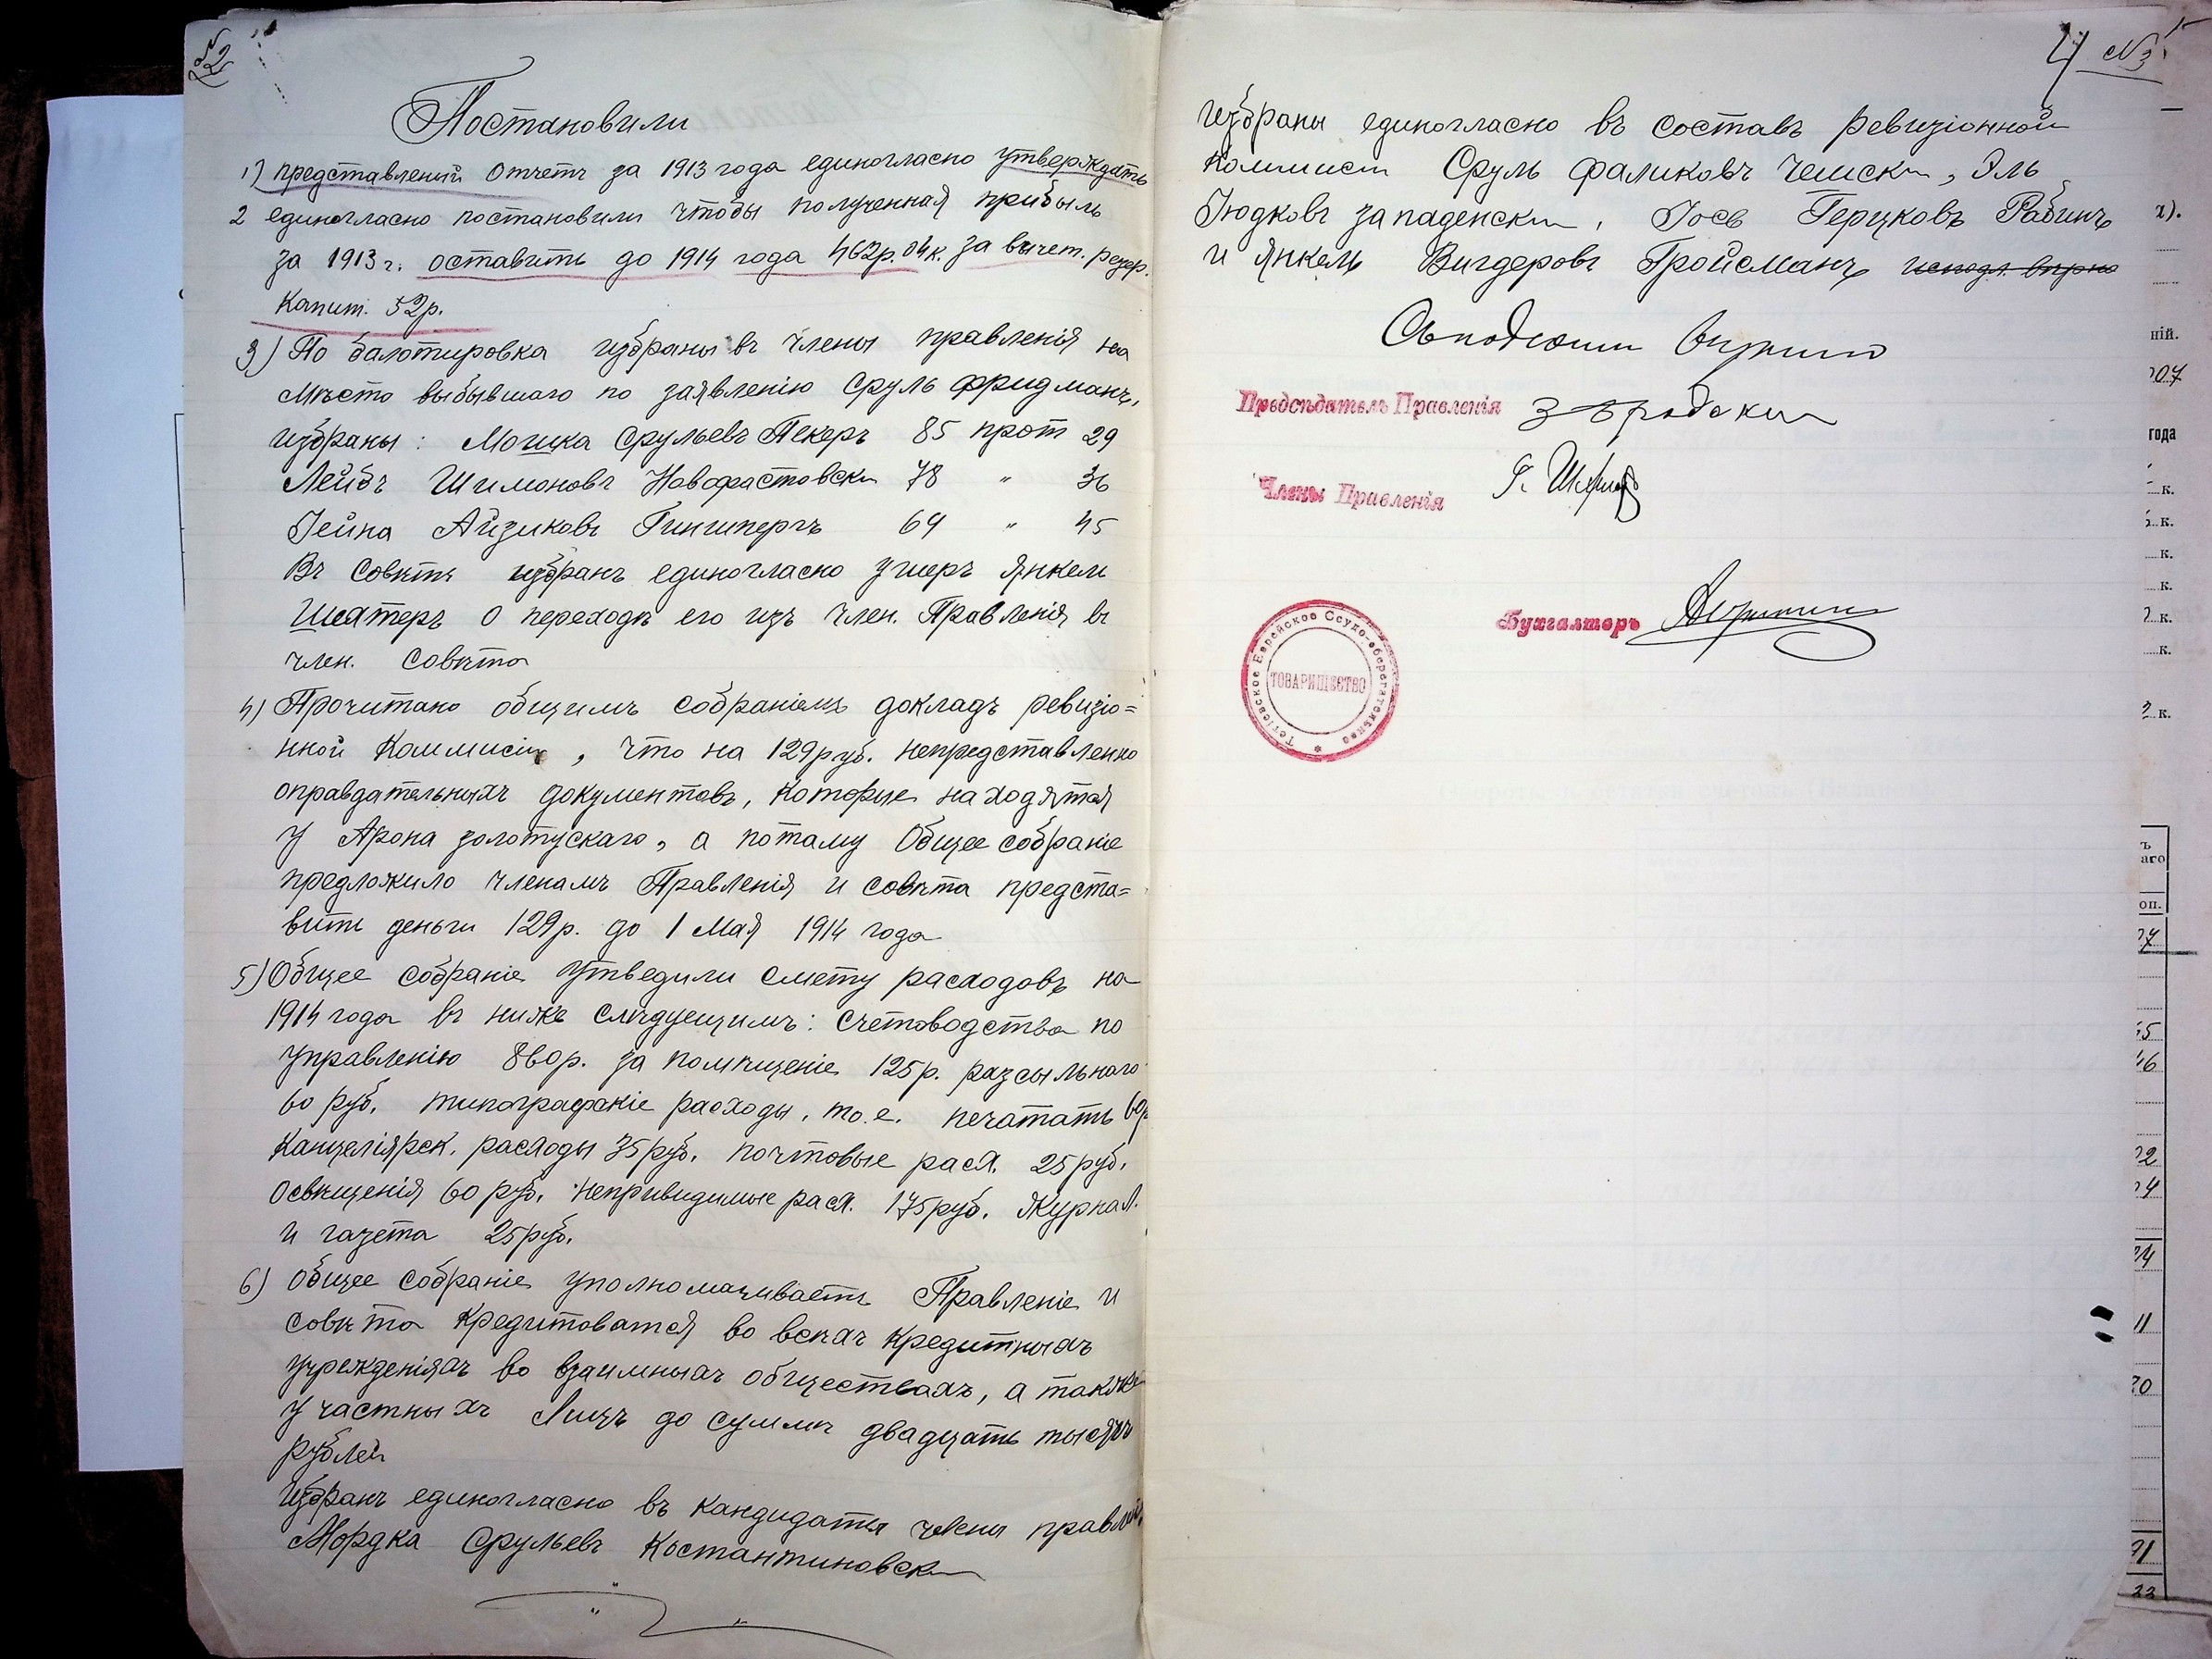 №2
Постановили
1) представлений отчетъ за 1913 года единогласно утверждать
2 единогласно постановили чтобы полученная прибыль
за 1913 г. оставить до 1914 года 462р. 04к. за вычет. резер.
Капит. 52р.
3) По балотировка избраны въ члены правленія на
мѣсто выбывшаго по заявленію Сруль Фридманъ,
избраны: Мошка Срульевъ Пекеръ 85 прот 29
Лейбъ Шимоновъ Новофастовски 78 " 36
Гейна Айзиковъ Гинзперъ 69 " 45
Въ совѣтъ избранъ единогласно Ушеръ Янкель
Шехтеръ о переходѣ его изъ член. Правленія въ
член. совѣта
4) Прочитано общимъ собраніемъ докладъ ревизіо=
нной Коммисіи, что на 129 руб. непредставленно
оправдательныхъ документовъ, которые находятся
у Арона Золотускаго, а потаму Общее собраніе
предложило членамъ Правленія и совѣта предста=
вить деньги 129р. до 1 Мая 1914 года
5) Общее собраніе утведили смету расходовъ на
1914 года въ ниже слѣдующимъ: счетоводства по
управленію 860р. за помѣщеніе 125р. разсыльнаго
60 руб. типографскіе расходы, то.е. печатать 60р
Канцелярск. расходы 35 руб. почтовые расх. 25 руб.
Освѣщенія 60 руб. непривидимые расх. 175 руб. Журнал.
и газета 25 руб.
6) Общее собраніе уполномачиваетъ Правленіе и
совѣта Кредитоватся во всѣхъ Кредитныхъ
учрежденіяхъ во взаимныхъ обществахъ, а также
у частныхъ Лицъ до суммы двадцать тысячъ
рублей
Избранъ единогласно въ кандидаты члены правленія
Мордка Срульевъ Костантиновски
4 №3
избраны единогласно въ составъ ревизіонной
Коммисіи Сруль Фаликовъ Чемски, Эль
Іюдковъ Западенски, Іось Герцковъ Рабинъ
и Янкель Вигдеровъ Гройсманъ
Съ подлиннымъ вѣрно
Предсѣдатель Правленія З Бродски
Члены Правленія Г.
Бухгалтеръ
Тетіевское Еврейское Ссудо-сберегательное
ТОВАРИЩЕСТВО
ній.
года
к.
к.
к.
к.
к.
к.
к.
ъ
аго
оп.